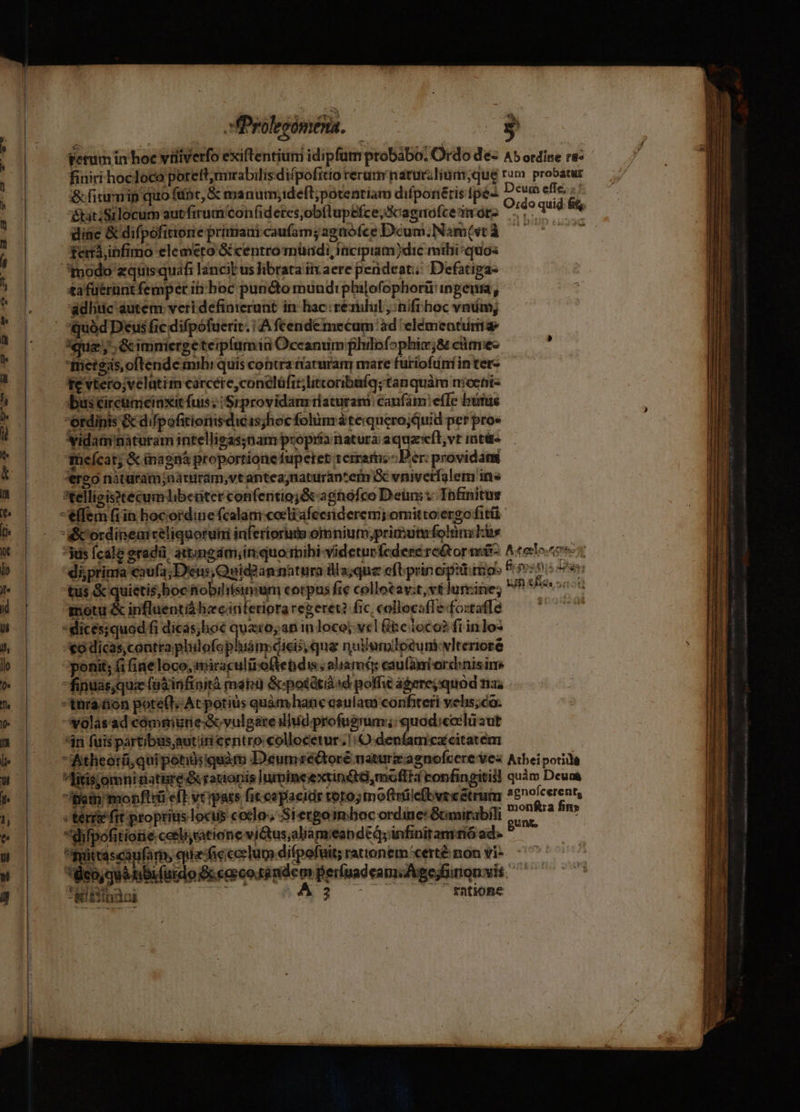 Prolegomena. 5
rerum in hoc vniverso existentium id ipsum probabo. Ordo de-
finiri hoc loco potest, mirabilis dispositio rerum naturalium, quę
& situm in quo sunt, & manum, id est, potentiam disponētis spe-
ctat. Si locum aut situm consideres, obstupesce, & agnosce in or-
dine & dispositione primam causam; agnosce Deum. Nam (vt à
terrâ, infimo elemēto & centro mundi, incipiam) dic mihi quos
modo æquis quasi lancibus librata in aere pendeat. Defatiga-
ta fuerunt semper in hoc puncto mundi philosophorū ingenia,
adhuc autem veri definierunt in hac re nihil, nisi hoc vnum,
quòd Deus sic disposuerit. Ascende mecum ad elementum a-
quæ, & immerge teipsum in Oceanum philosophiæ; & cùm e-
mergas, ostende mihi quis contra naturam mare furiosum in ter-
re vtero, velut im carcere, conclusit, littoribusq; tanquàm moeni-
bus circumcinxit suis. Si providam naturam causam esse huius
ordinis & dispositionis dicas, hoc solùm à te quero, quid per pro-
vidam naturam intelligas; nam propria natura aquæ est, vt intu-
mescat, & magnâ proportione superet terram. Per providam
ergo naturam, naturam, vt antea, naturantem & vniversalem in-
telligis? tecum libenter consentio, & agnosco Deum. Infinitus
essem si in hoc ordine scalam cœli ascenderem; omitto ergo sitū
& ordinem reliquorum inferiorum omnium, primum solùm hu-
ius scalę gradū attingam, in quo mihi videtur sedere rector
prima causa, Deus. Quid? an natura illa, quæ est principiū mo-
tus & quietis, hoc nobilissimum corpus sic collocavit, vt lumine,
motu & influentiâ hæc inferiora regeret? sic collocasse fortasse
dices; quod si dicas, hoc quæro, an in loco, vel sine loco? si in lo-
co dicas, contra philosophiam dicis, quæ nullum locum vlteriore
ponit; si sine loco, miraculū ostendis; aliamq; causam ordinis in-
sinuas, quæ suâ infinitâ manu & potētiâ id possit agere, quod na-
tura non potest. At potiùs quàm hanc causam confiteri velis, cō-
volas ad commune & vulgare illud profugium; quod cœlū aut
in suis partibus, aut in centro collocetur. O densam cæcitatem
Atheorū, qui potiùs quàm Deum rectorē naturæ agnoscere ve-
litis, omni naturę & rationis lumine extincto, mōstra confingitis!
nam monstrū est vt pars sit capacior toto; mōstrū est vt cētrum
terræ sit proprius locus cœlo. Si ergo in hoc ordine & mirabili
dispositione cœli, ratione victus, aliam eandēq; infinitam nō ad-
mittas causam, quæ sic cœlum disposuit; rationem certè non vi-
deo, quâ tibi surdo & cæco tandem persuadeam. Age, si non vis
A 3 ratione
Ab ordine re-
rum probatur
Deum esse.
Ordo quid sit.
A cœlo
Athei potiùs
quàm Deum
agnoscerent,
monstra fin-
gunt.